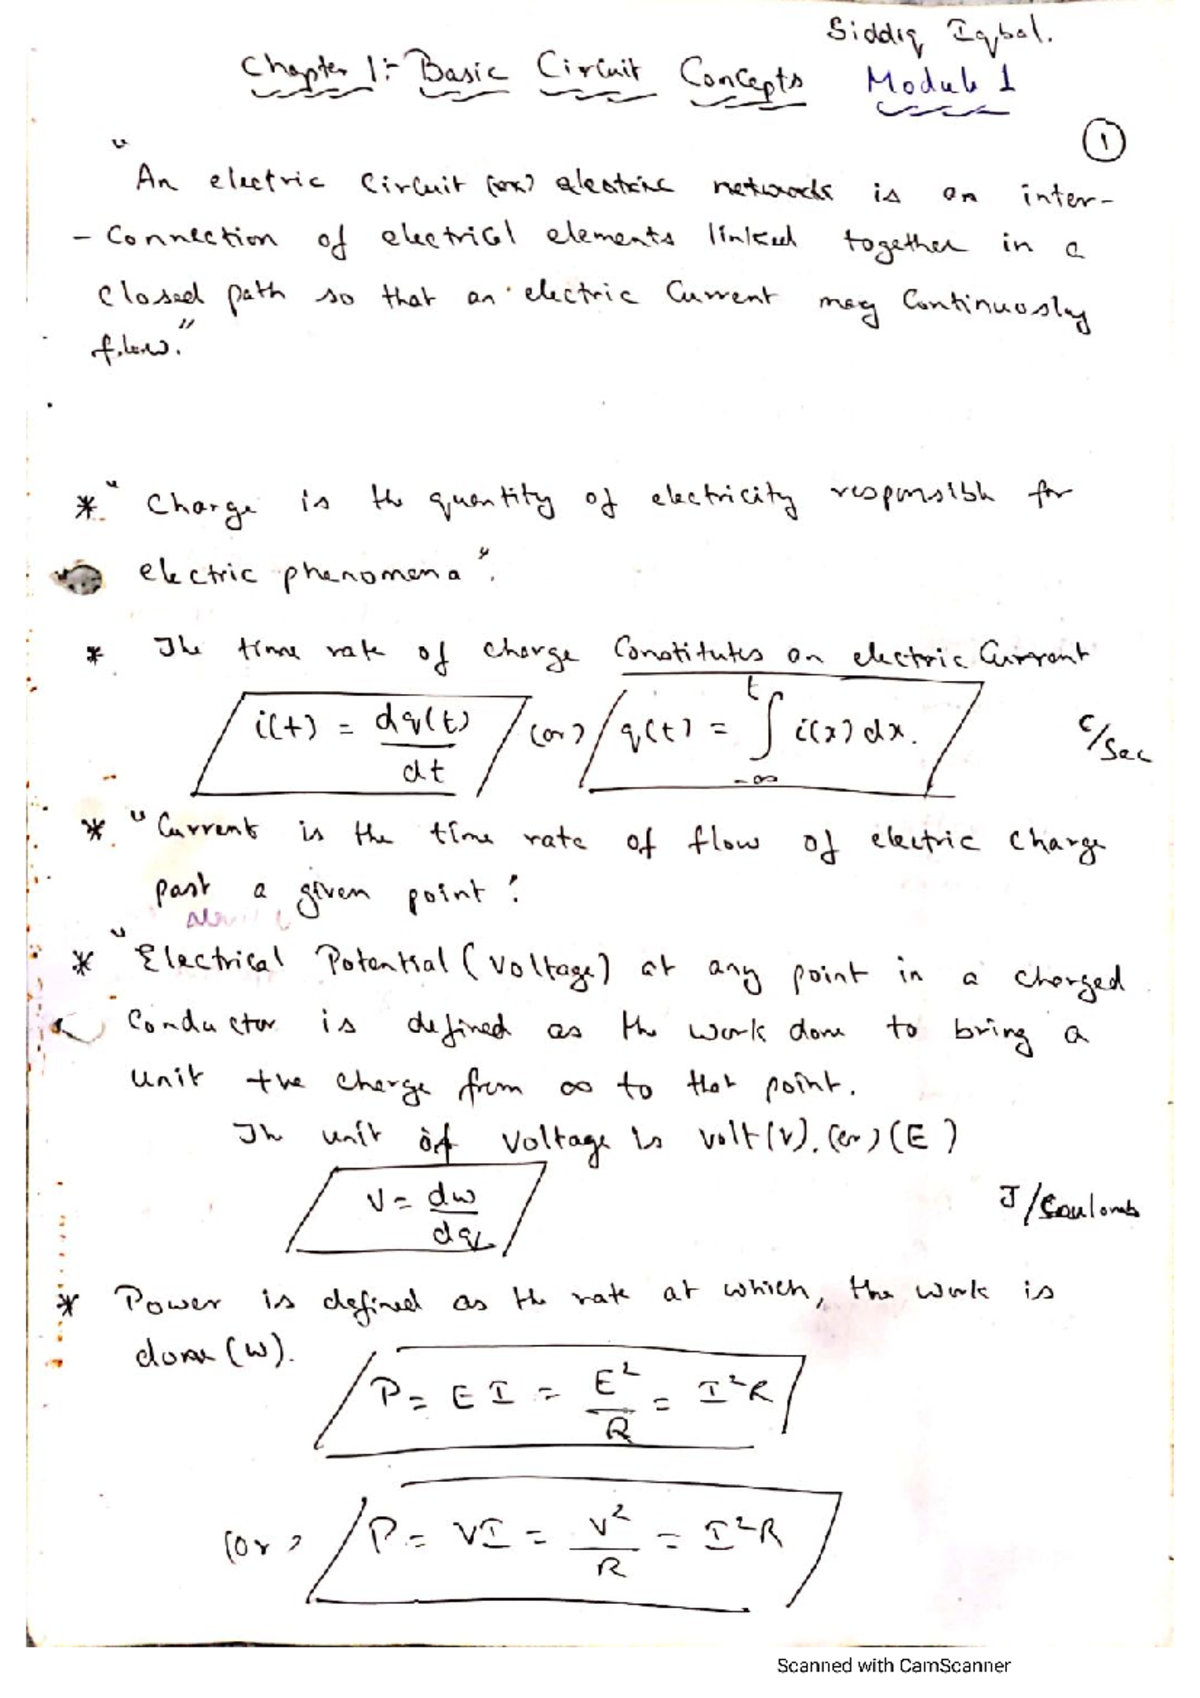 Siddiq Iqbal.
Chapter 1:- Basic Circuit Concepts Module 1
1
"An electric Circuit (or) electric network is an inter-
- Connection of electrical elements linked together in a
Closed path so that an electric Current may Continuosly
flow."
* "Charge is the quantity of electricity responsible for
electric phenomena".
* The time rate of charge Constitutes an electric Current
i(t) = dq(t)/dt (or) q(t) = ∫_{-∞}^{t} i(x) dx. C/Sec
* "Current is the time rate of flow of electric charge
past a given point".
* "Electrical Potential (Voltage) at any point in a charged
Conductor is defined as the work done to bring a
unit +ve charge from ∞ to that point.
The unit of Voltage is volt (V). (or) (E)
V = dw/dq J/Coulomb
* Power is defined as the rate at which, the work is
done (W).
P = EI = E²/R = I²R
(or) P = VI = V²/R = I²R
Scanned with CamScanner